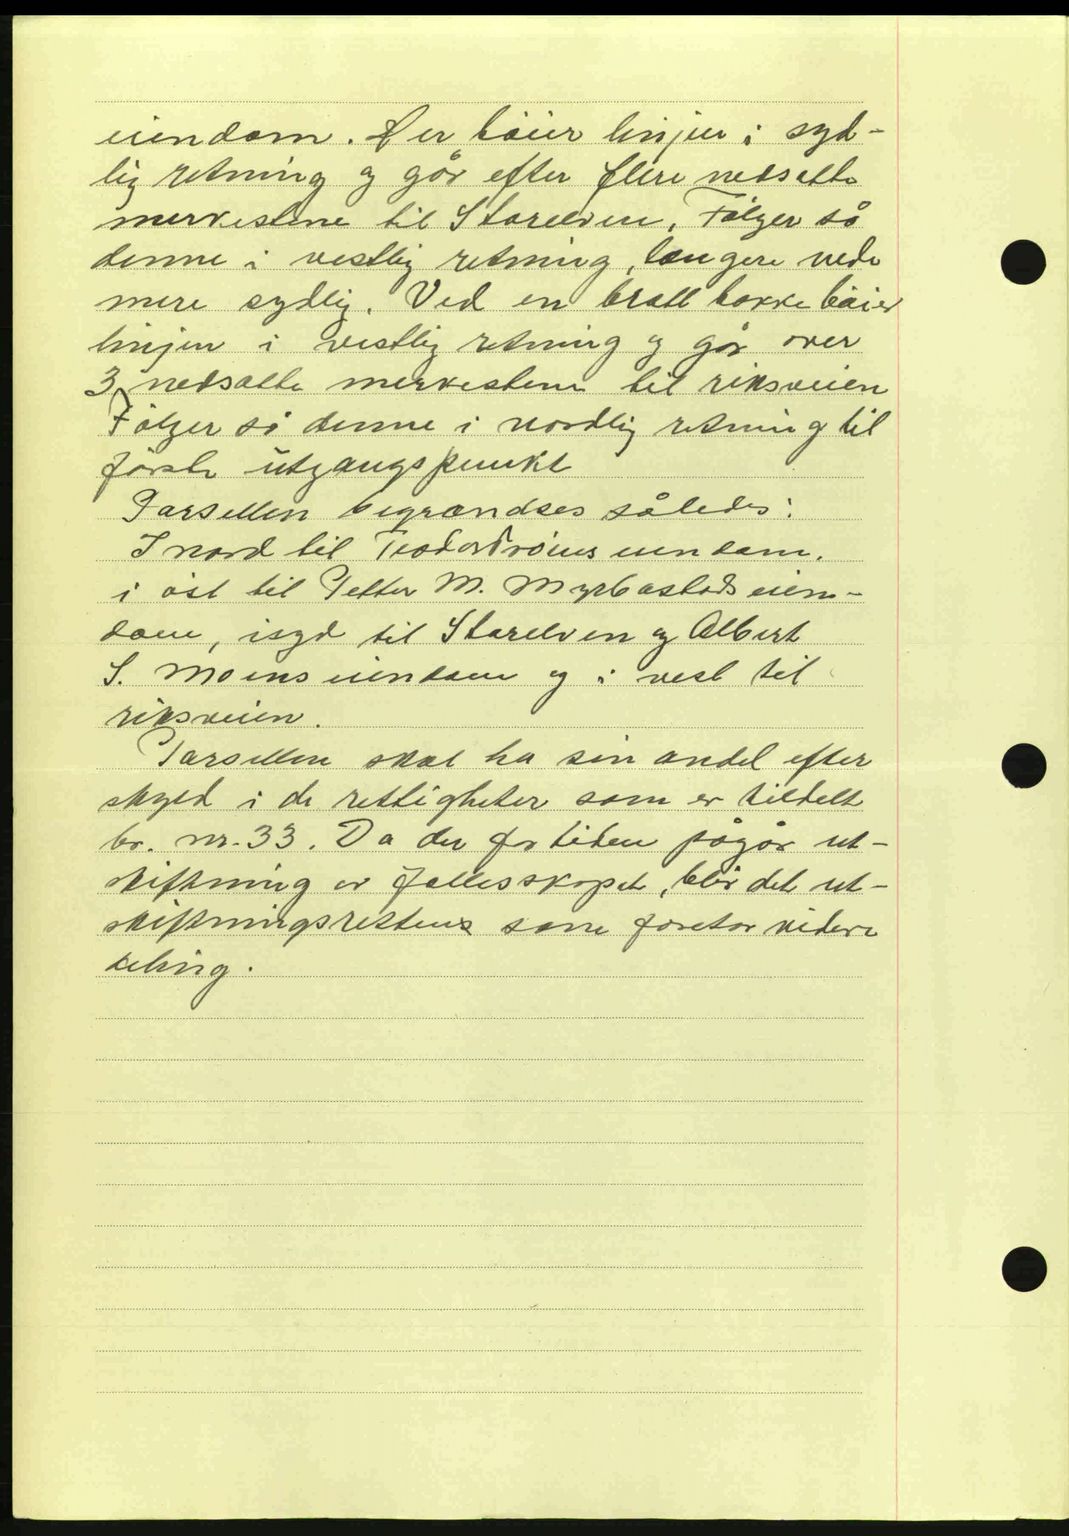 eiendom. Her böier linjen i syd-
lig retning og går efter flere nedsatte
merkestene til Storelven. Fölger så
denne i vestlig retning, længere nede
mere sydlig. Ved en bratt bakke böier
linjen i vestlig retning og går over
3 nedsatte merkestene til riksveien
Fölger så denne i nordlig retning til
förste utgangspunkt
Parsellen begrændses således:
I nord til Teodor eiendom.
i öst til Petter M. Myrbostads eien-
dom, i syd til Storelven og Albert
S. Moens eiendom og i vest til
riksveien.
Parsellen skal ha sin andel efter
skyld i de rettigheter som er tildelt
br. nr. 33. Da der for tiden pågår ut-
skiftning av fællesskapet, blir det ut-
skiftningsrettens som foretar videre
deling.